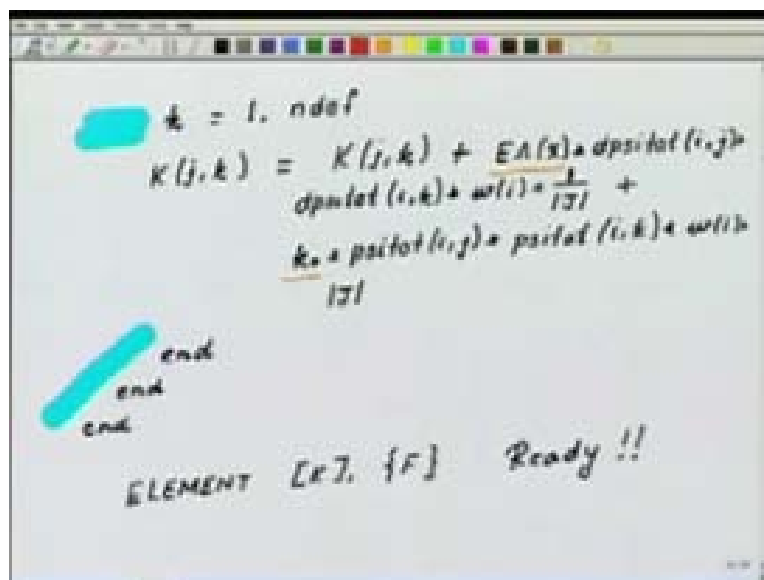 k = 1, ndof
K(j,k) = K(j,k) + EA(x)* dpsitot(i,j)*
dpsitot(i,k)* w(i)* 1/|J| +
k₀ * psitot(i,j)* psitot(i,k)* w(i)*
|J|
end
end
end
ELEMENT [K], {F} Ready !!